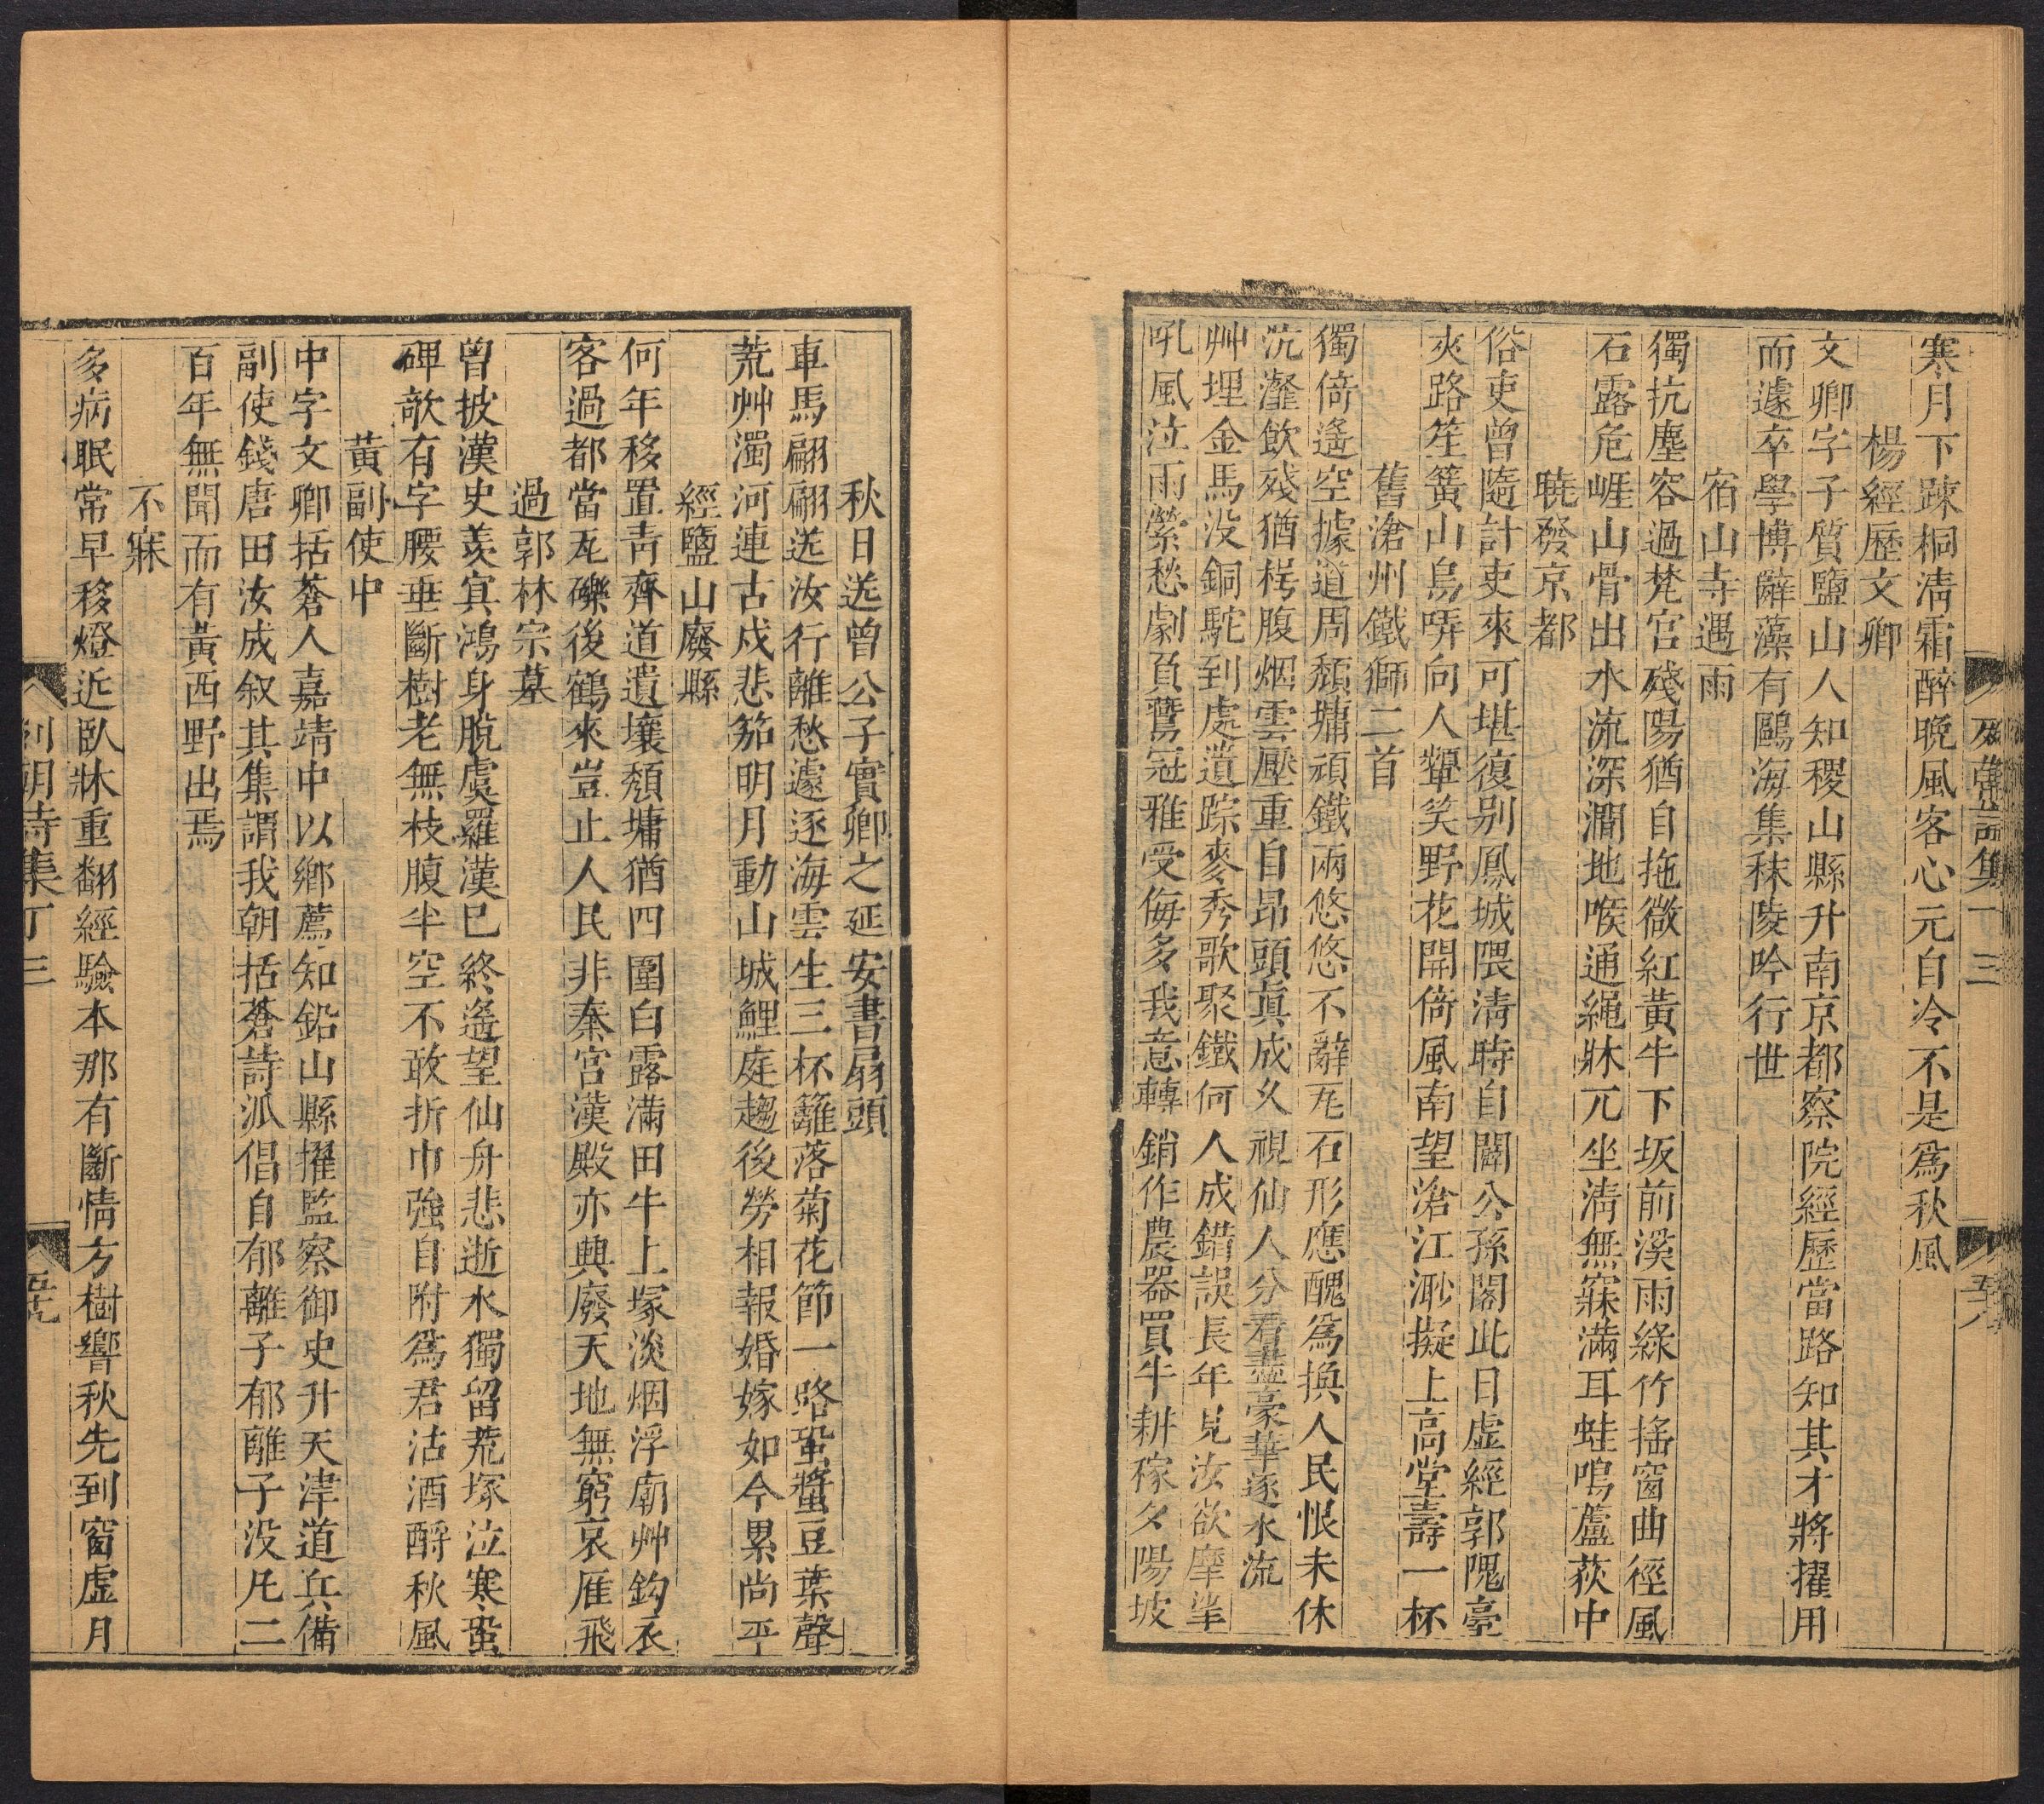 寒月下疎桐淸霜醉晩風客心元自冷不是爲秋風
楊經歷文卿
文卿字子質鹽山人知稷山縣升南京都察院經歷當路知其才將擢用
而遽卒學博辭藻有鷗海集秣陵吟行世
宿山寺遇雨
獨抗塵容過梵宮殘陽猶自拖微紅黃牛下坂前溪雨綠竹搖窗曲徑風
石露危崕山骨出水流深澗地喉通繩牀兀坐淸無寐滿耳蛙鳴蘆荻中
曉發京都
俗吏曾隨計吏來可堪復別鳳城隈淸時自闢公孫閣此日虛經郭隗臺
夾路笙簧山鳥哢向人顰笑野花開倚風南望滄江渺擬上高堂壽一杯
舊滄州鐵獅二首
獨倚遙空據道周頹墉頑鐵兩悠悠不辭瓦石形應醜爲換人民恨未休
沆瀣飮殘猶枵腹烟雲壓重自昂頭眞成久視仙人分看盡豪華逐水流
艸埋金馬没銅駝到處遺踪麥秀歌聚鐵何人成錯誤長年見汝欲摩挲
吼風泣雨縈愁劇負轝冠雅受侮多我意轉銷作農器買牛耕稼夕陽坡
列朝詩集丁三
五十八
秋日送曾公子實卿之延安書扇頭
車馬翩翩送汝行離愁遽逐海雲生三杯籬落菊花節一路蛩螿豆葉聲
荒艸濁河連古戍悲笳明月動山城鯉庭趨後勞相報婚嫁如今累尙平
經鹽山廢縣
何年移置靑齊道遺壤頹墉猶四圍白露滿田牛上塚淡烟浮廟艸鈎衣
客過都當瓦礫後鶴來豈止人民非秦宮漢殿亦興廢天地無窮哀雁飛
過郭林宗墓
曾披漢史羨冥鴻身脫虞羅漢已終遙望仙舟悲逝水獨留荒塚泣寒蛩
碑欹有字腰垂斷樹老無枝腹半空不敢折巾強自附爲君沽酒酹秋風
黃副使中
中字文卿括蒼人嘉靖中以鄉薦知鉛山縣擢監察御史升天津道兵備
副使錢唐田汝成叙其集謂我朝括蒼詩派倡自郁離子郁離子没凡二
百年無聞而有黃西野出焉
不寐
多病眠常早移燈近臥牀重翻經驗本那有斷情方樹響秋先到窗虛月
列朝詩集丁三
五十九